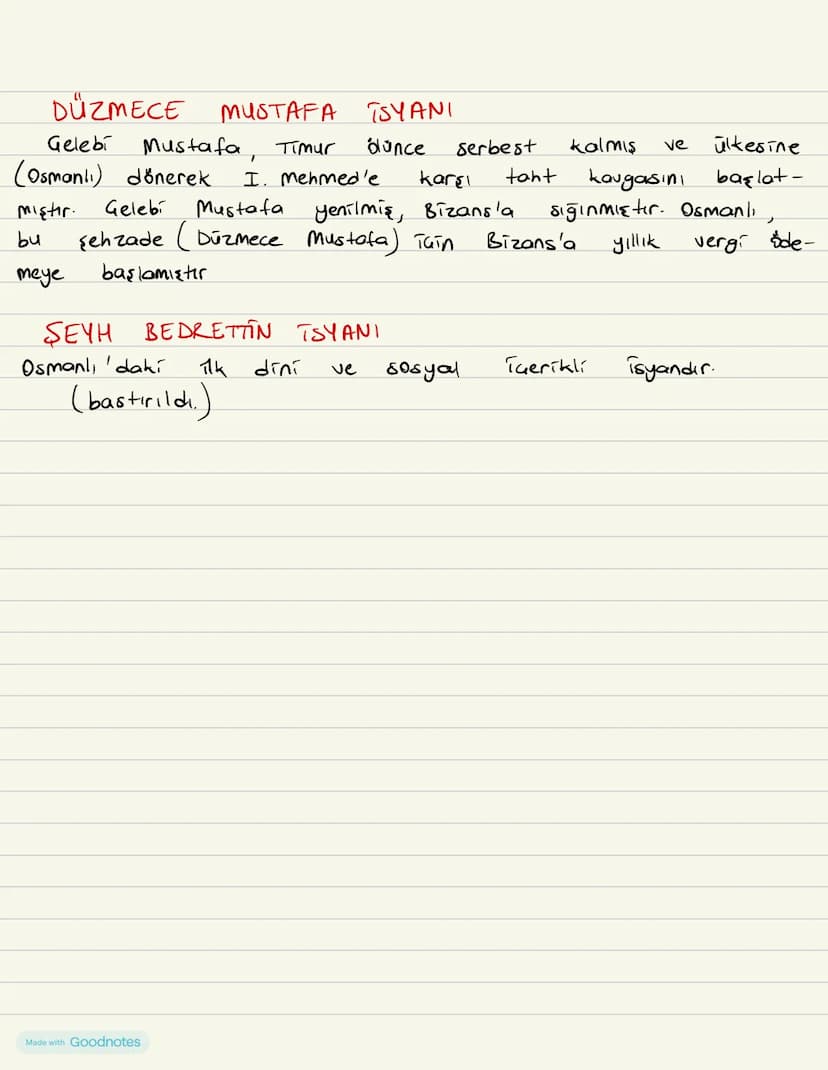 DÜZMECE MUSTAFA İSYANI
Çelebi Mustafa, Timur ölünce serbest kalmış ve ülkesine
(Osmanlı) dönerek I. Mehmed'e karşı taht kavgasını başlat-
mıştır. Çelebi Mustafa yenilmiş, Bizans'a sığınmıştır. Osmanlı,
bu şehzade (Düzmece Mustafa) için Bizans'a yıllık vergi öde-
meye başlamıştır
ŞEYH BEDRETTİN İSYANI
Osmanlı'daki ilk dini ve sosyal içerikli isyandır.
(bastırıldı.)
Made with Goodnotes